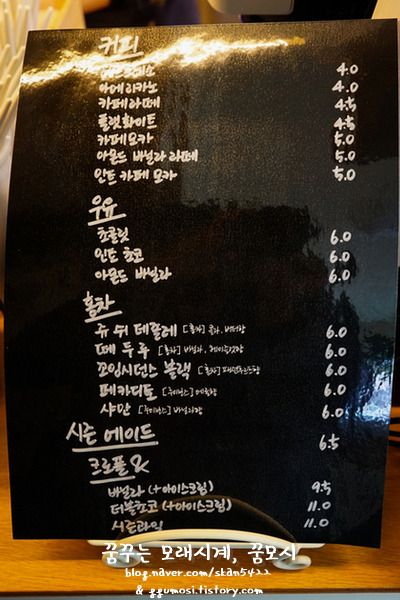 커피
에스프레소 4.0
아메리카노 4.0
카페라떼 4.5
플랫화이트 4.5
카페모카 5.0
아몬드 바닐라 라떼 5.0
민트 카페 모카 5.0
우유
초콜릿 6.0
민트 초코 6.0
아몬드 바닐라 6.0
홍차
쥬 쉬 테플레 [홍차] 6.0
떼 두 루 [홍차] 바닐라, 6.0
꼬임시던스 블랙 [홍차] 6.0
페카디토 6.0
샤만 6.0
시즌 에이드 6.5
크로플 &
바닐라 (+아이스크림) 9.5
더블초코 (+아이스크림) 11.0
시즌과일 11.0
꿈꾸는 모래시계, 꿈모시
blog.naver.com/skan5422
& ggumosi.tistory.com